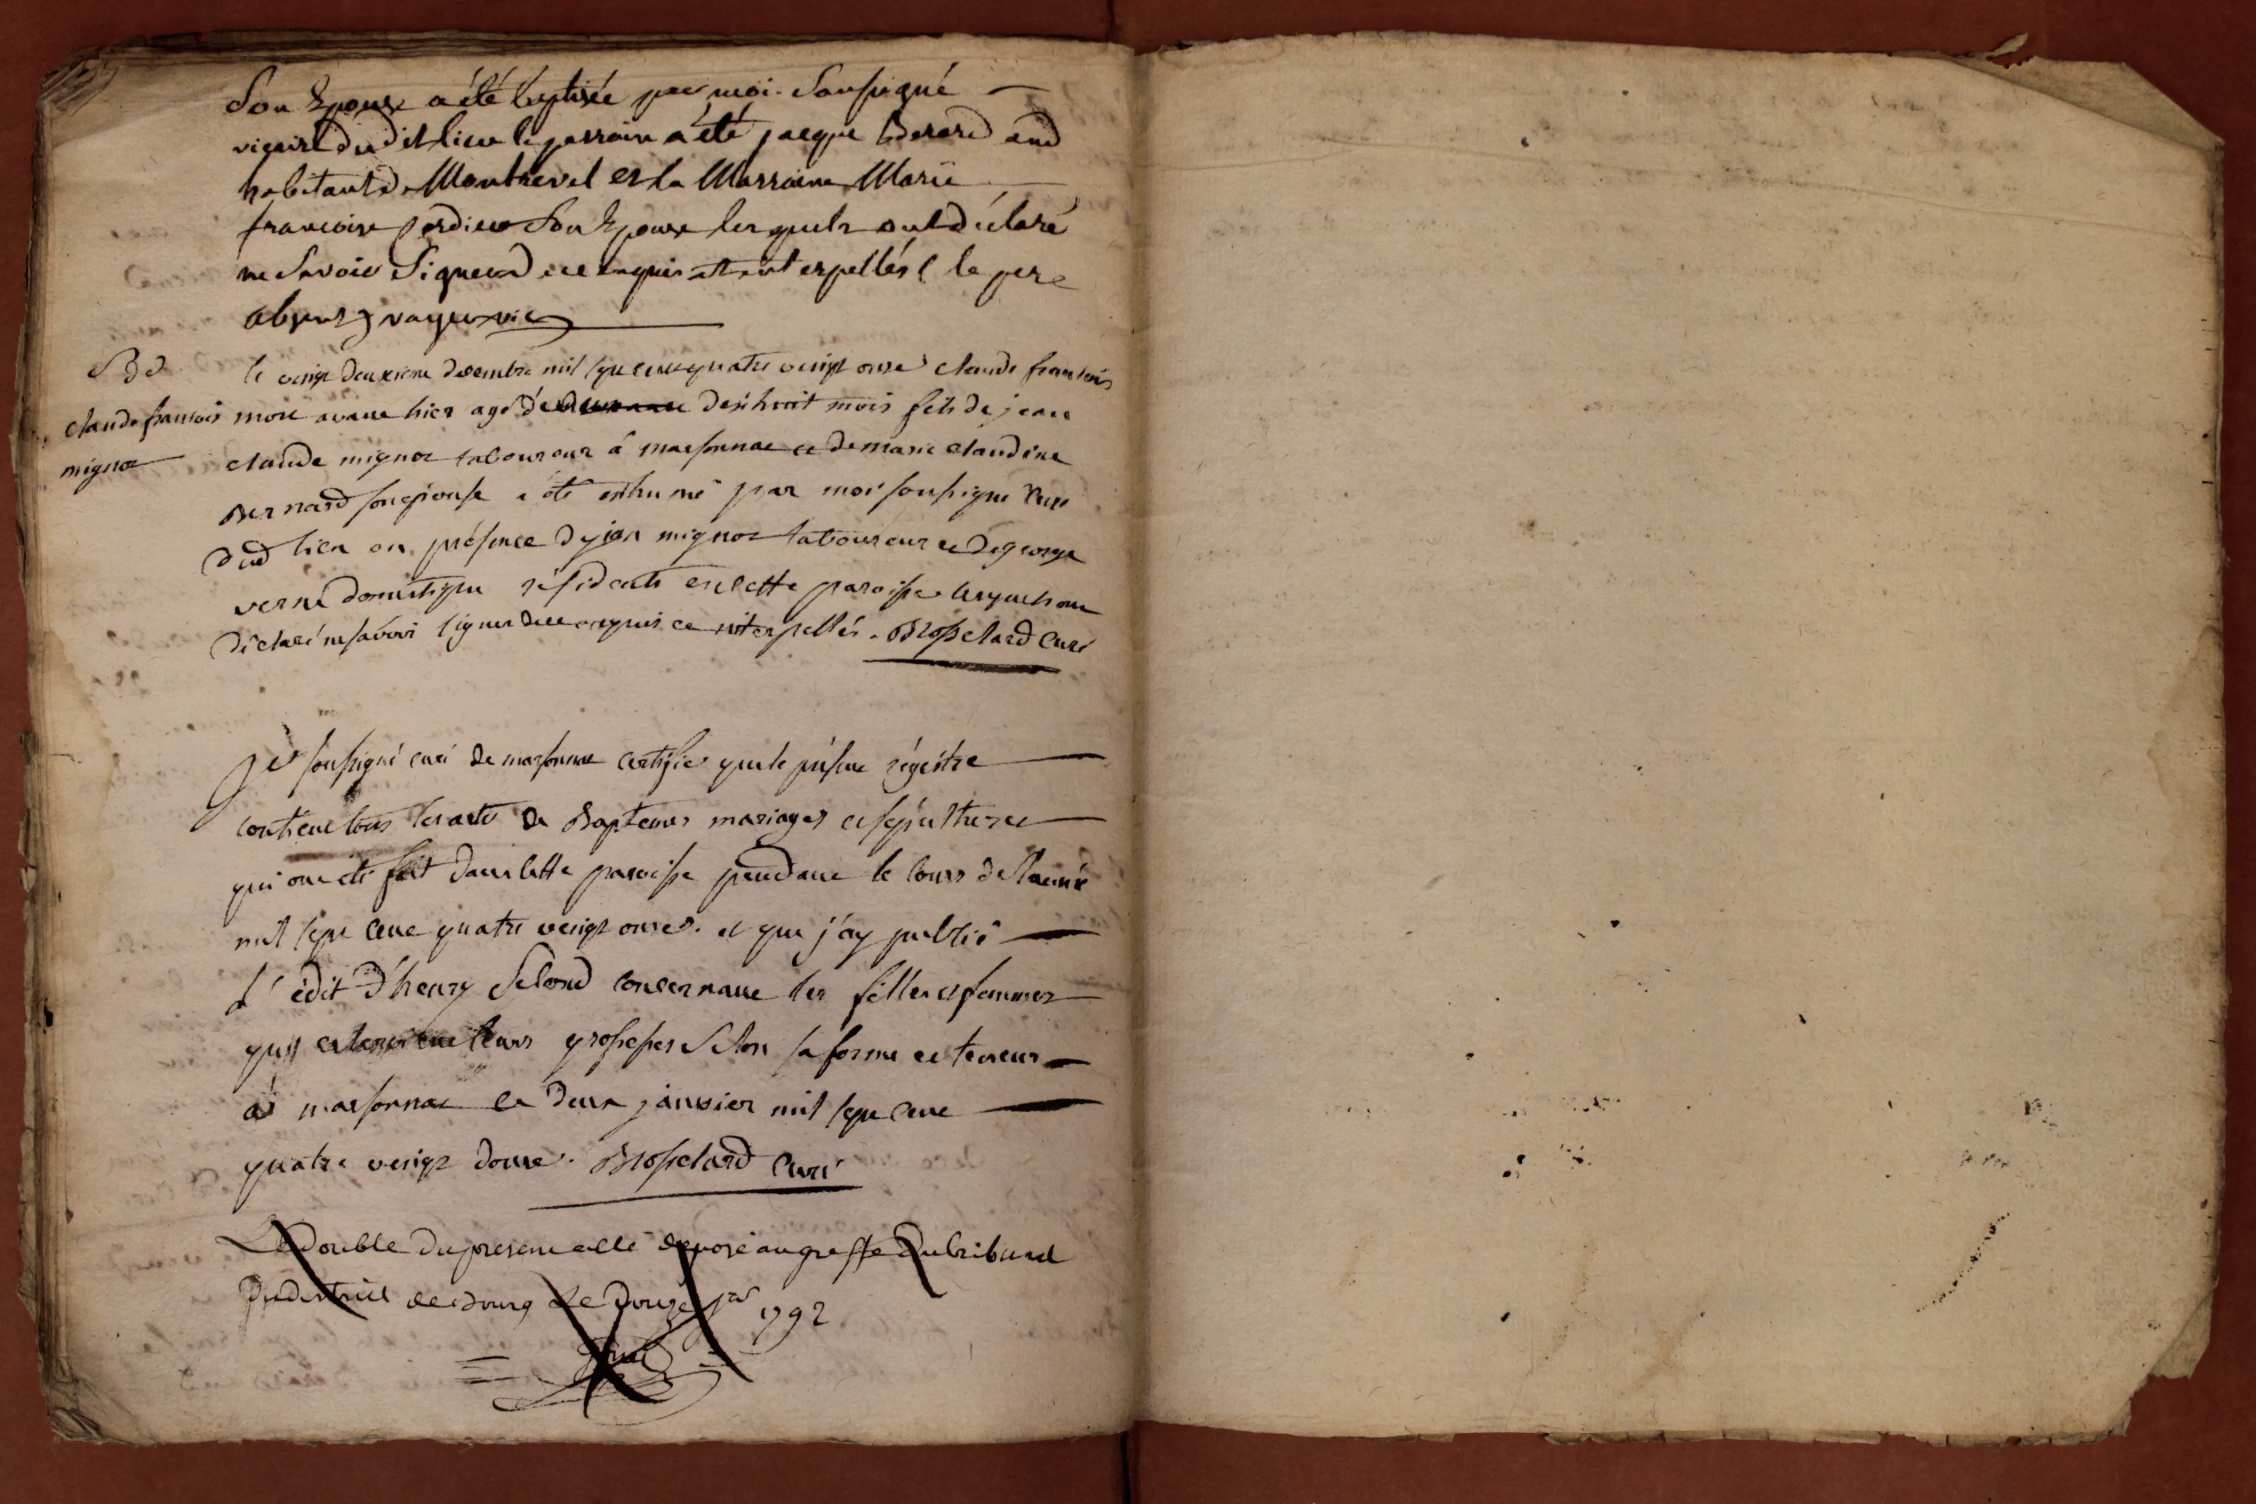 Son Epouse a été baptisée par moi Soussigné
vicaire dudit lieu le parrain a été jacque Berard aud
habitant de Montrevel et la Marraine Marie
francoise perdieu Son Epouse lesquels ont déclaré
ne Savoir Signer de ce enquis et interpellés ( le pere
absent ) vayer vic
S de
claude francois
mignot
le vingt deuxieme decembre mil sept cent quatre vingt onze claude francois
mort avant hier agé de dixhuit mois fils de jean
claude mignot laboureur à marsonnat et de marie claudine
Bernard son epouse a été inhumé par moi soussigné Curé
dud lieu en présence de jean mignot laboureur et de george
verne domestique résidents en cette paroisse lesquels ont
déclaré ne savoir signer de ce enquis et interpellés. Brosselard Curé
Je soussigné curé de marsonnat certifie que le présent régistre
contient tous les actes de Baptemes mariages et sépultures
qui ont été fait dans cette paroisse pendant le cours de l'année
mil sept cent quatre vingt onze. et que j'ay publié
l'édit d'henry Second concernant les filles et femmes
qui leurs grossesses Selon sa forme et teneur
à marsonnat ce deux janvier mil sept cent
quatre vingt douze. Brosselard Curé
Le Double du present a été deposé au greffe du tribunal
du district de Bourg le douze jer 1792